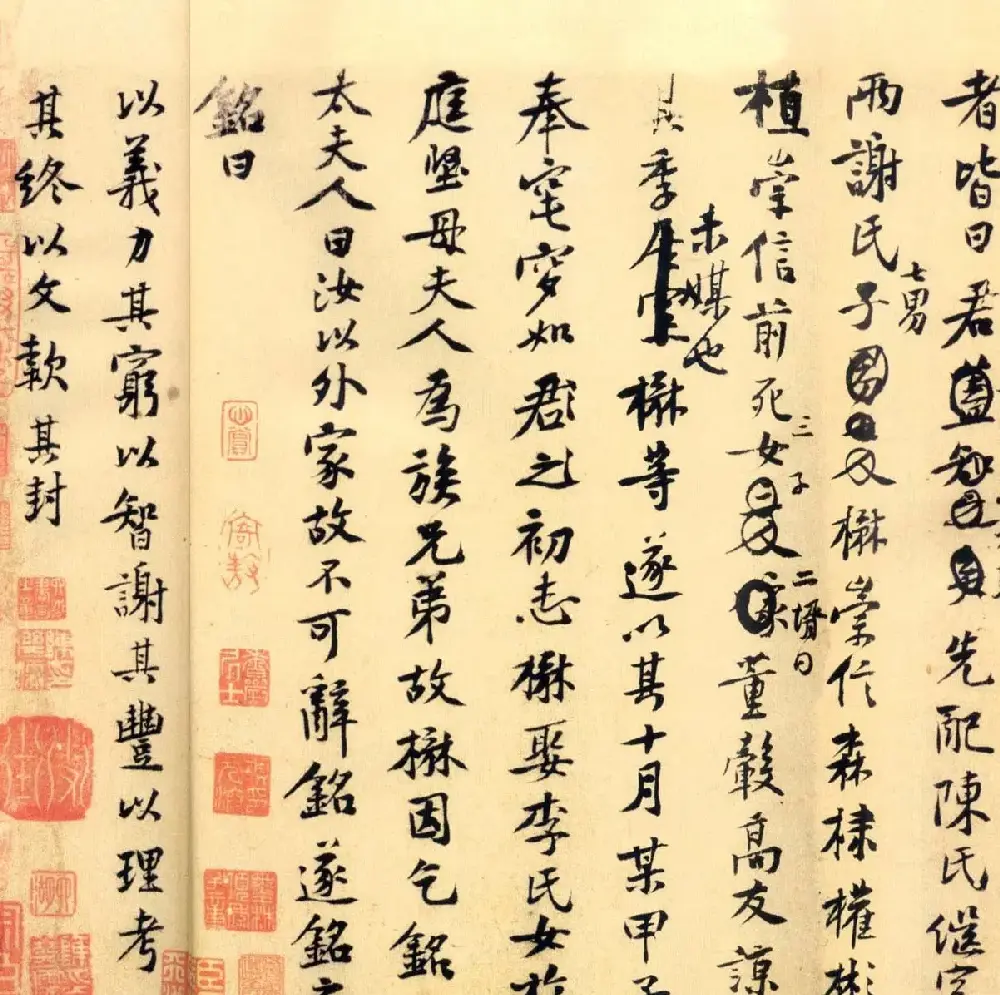 者皆曰君先配陳氏繼室
兩謝氏子七男楙崇信森棣權彬
植崇信前死女三子二壻曰董毅高友諒
其季未媒也楙等遂以其十月某甲子
奉窀穸如君之初志楙娶李氏女於
庭堅母夫人為族兄弟故楙因乞銘
太夫人曰汝以外家故不可辭銘遂銘之
銘曰
以義力其窮以智謝其豐以理考
其終以文款其封